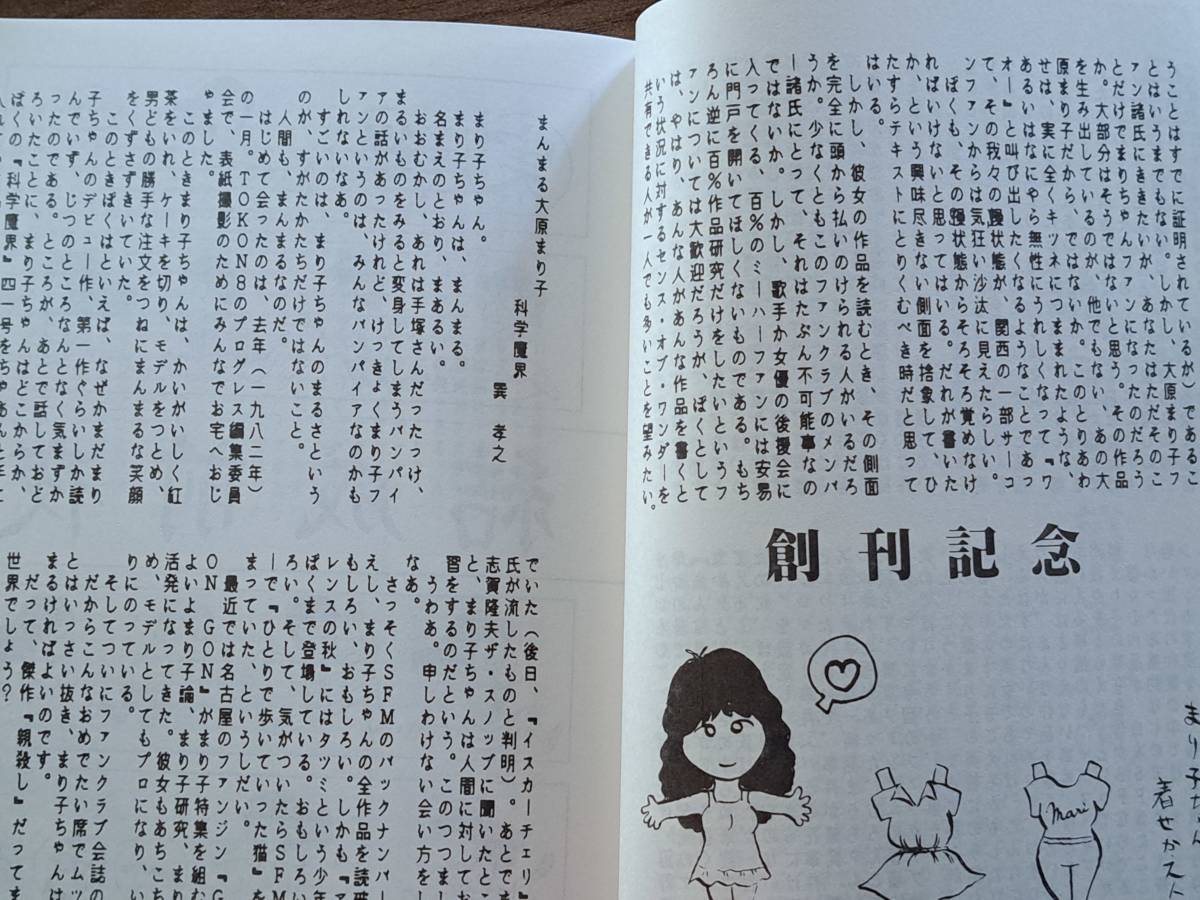 とはいうまでもない。しかし、大原まり子フ
ァン諸氏にききたいが、あなたはただそのこ
とだけでまりちゃんファンになったのだろう
か。大部分はそうではないと思う。その作品
を生み出しているのが、他でもない、あの大
原まり子だから、ではないか。このとりあわ
せは、実に全くキツネにつままれたような、
あるいはなにやら無性にうれしくなって『ワ
オー』と叫び出したくなるようなことであっ
て、その我々の躁状態が、関西の一部サーコ
ンファンからは気狂い沙汰に見えたらしい。
ぼくも、その躁状態からそろそろ覚めなけ
ればいけないと思ってはいる。だれが書いた
か、という興味尽きない側面を捨象して、ひ
たすらテキストにとりくむべき時だと思って
はいる。
しかし、彼女の作品を読むとき、その側面
を完全に頭から払いのけられる人がいるだろ
うか。少なくともこのファンクラブのメンバ
ー諸氏にとって、それはたぶん不可能事なの
ではないか。しかし、歌手か女優の後援会に
入ってくる、百%のミーハーファンには安易
に門戸を開いてほしくないものである。もち
ろん逆に百%作品研究だけをしたいというフ
ァンについては大歓迎だろうが、ぼくとして
は、やはり、あんな人があんな作品を書くと
いう状況に対するセンス・オブ・ワンダーを
共有できる人が一人でも多いことを望みたい。
創刊記念
まり子
着せかえ
Mari
まんまる大原まり子
科学魔界 巽 孝之
まり子ちゃん。
まり子ちゃんは、まんまる。
名まえのとおり、まあるい。
おおむかし、あれは手塚さんだったっけ、
まるいものをみると変身してしまうバンパイ
アの話があったけれど、けっきょくまり子フ
ァンというのは、みんなバンパイアなのかも
しれないなあ。
すごいのは、まり子ちゃんのまるさという
のが、すがたかたちだけではないこと。
人間も、まんまるなのだ。
はじめて会ったのは、去年（一九八二年）
の一月。TOKON8のプログレス編集委員
会で、表紙撮影のためにみんなでお宅へおじ
ゃました。
このときまり子ちゃんは、かいがいしく紅
茶をいれ、ケーキを切り、モデルをつとめ、
男どもの勝手な注文をつねにまんまるな笑顔
をくずさずきいていた。
このときぼくはといえば、なぜかまだまり
子ちゃんのデビュー作、第一作ぐらいしか読
んでいず、じつのところなんとなく気まずか
ったのである。ところが、あとで話しておど
ろいたことに、まり子ちゃんはどこからか、
ぼくの『科学魔界』四一号をちゃあんと手に
でいた（後日、『イスカーチェリ』
氏が流したものと判明）。あとでま
志賀隆夫ザ・スノッブに聞いたとこ
と、まり子ちゃんは人間に対してお
習をするのだという。このつつまし
うわあ。申しわけない会い方をし
なあ。
さっそくSFMのバックナンバー
えし、まり子ちゃんの全作品を読破
もしろい、おもしろい。しかも『ア
レンスの秋』にはタツミという少年
ぼくまで登場している。おもしろい
ろい。そして、気がついたらSFM
ーで『ひとりで歩いていった猫』を
まっていた、というしだい。
最近では名古屋のファンジン『G
ON GON』がまり子特集を組む
よいよまり子論、まり子研究、まり
活発になってきた。彼女もあちこち
め、モデルとしてもプロになり、い
りにのっている。
そしてついにファンクラブ会誌の
だからこんなおめでたい席でムツ
とはいっさい抜き、まり子ちゃんは
まるければよいのです。
だって、傑作『親殺し』だってま
世界でしょう？